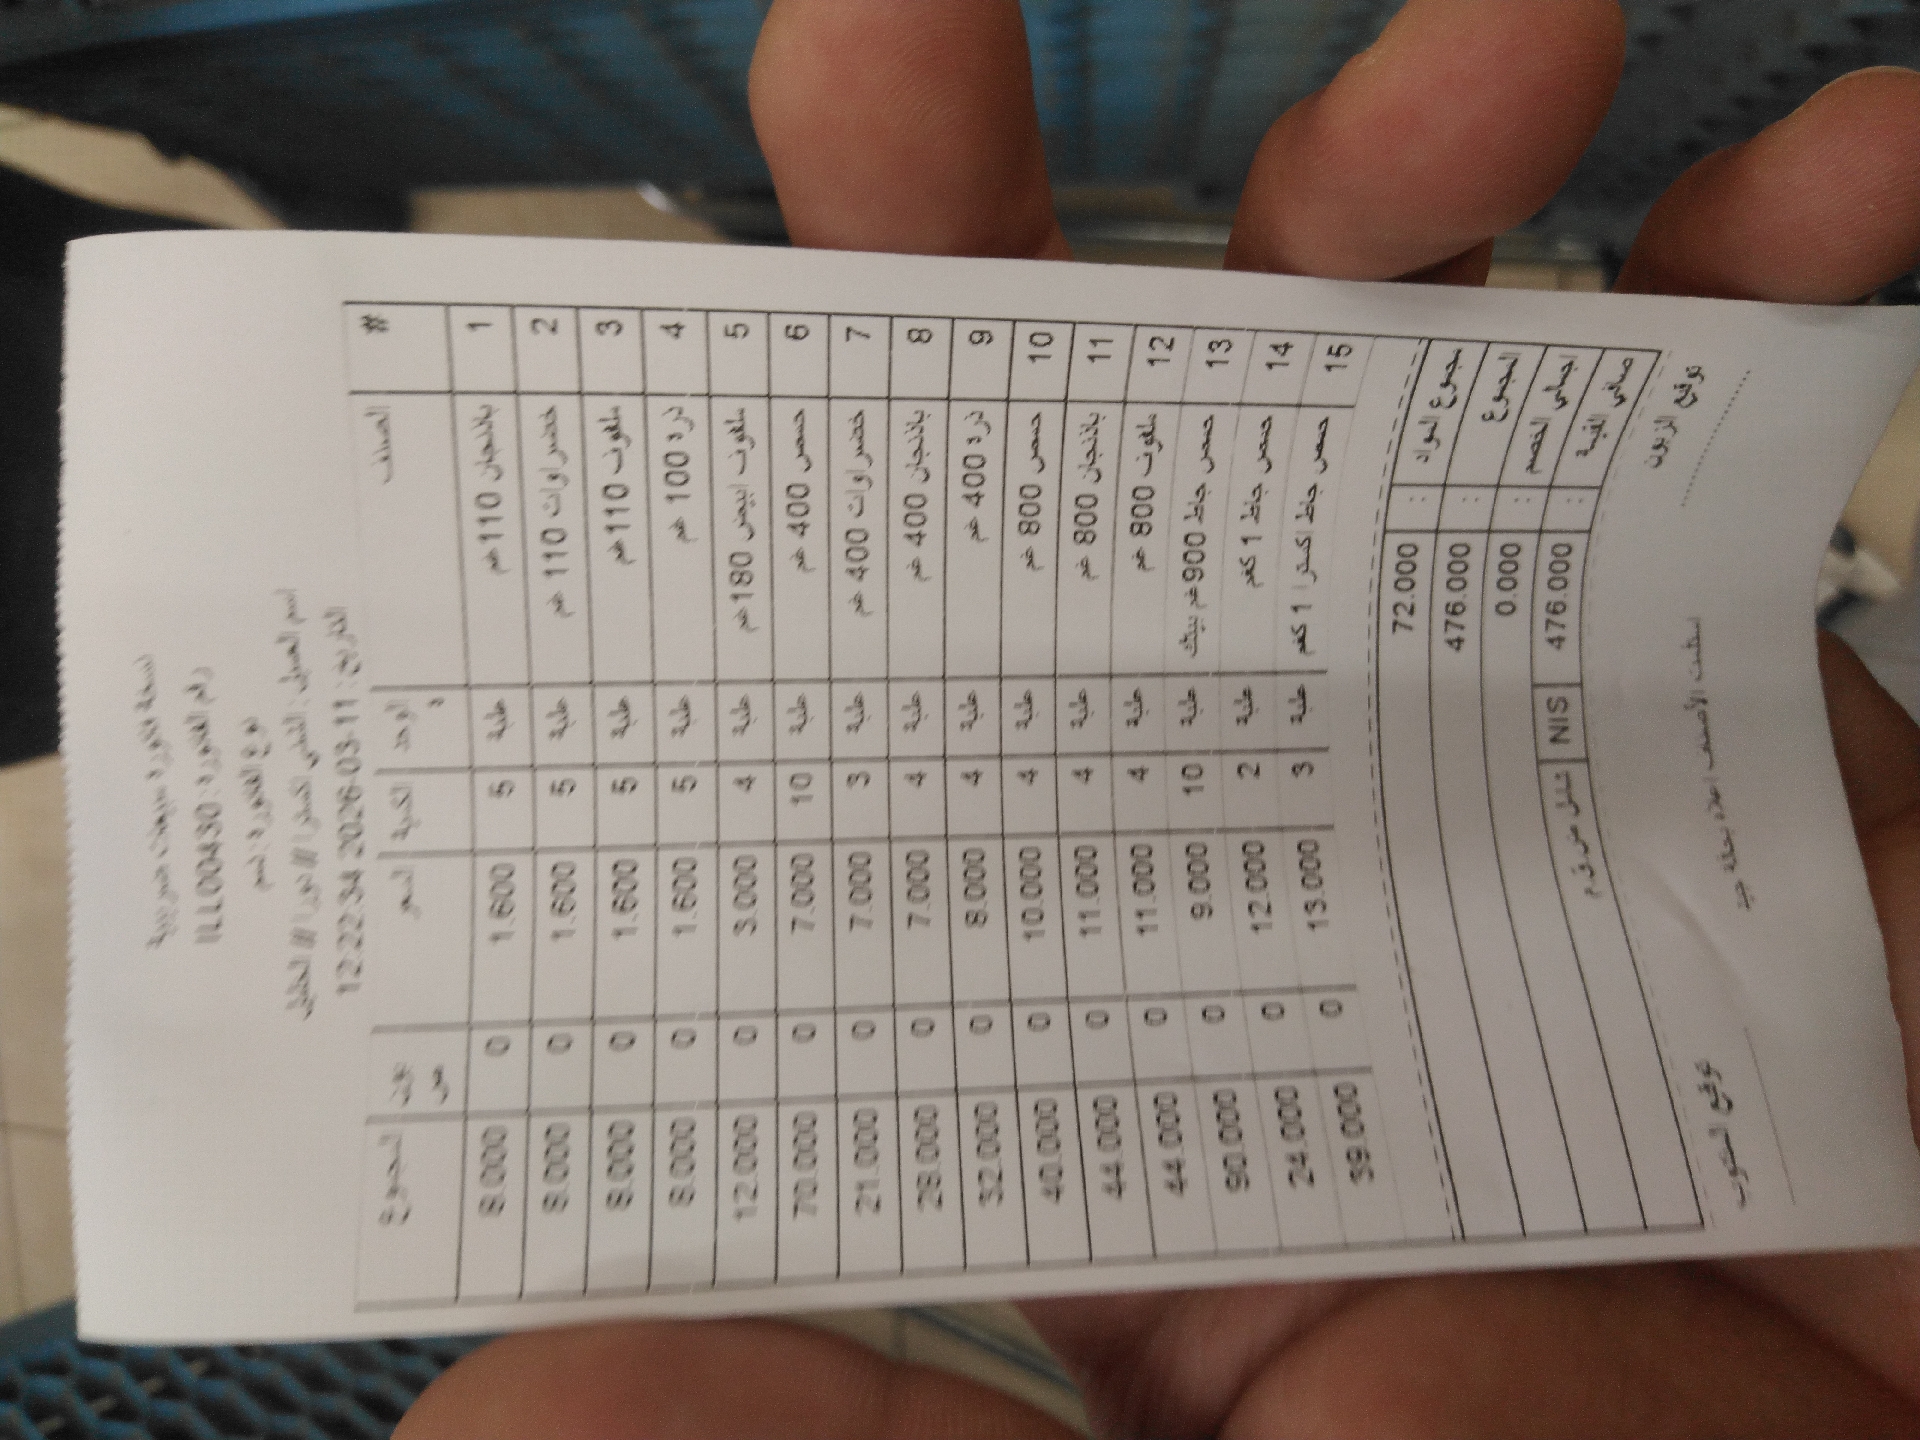 نسخة فاتورة مبيعات ضريبية
رقم الفاتورة: ILL00430
نوع الفاتورة: ذمم
اسم العميل: الكسترا // دورا // الخليل
التاريخ: 2026-03-11 12:22:34
# الصنف الوحدة الكمية السعر بونص المجموع
1 باذنجان 110غم علبة 5 1.600 0 8.000
2 خضراوات 110 غم علبة 5 1.600 0 8.000
3 ملفوف 110غم علبة 5 1.600 0 8.000
4 ذرة 100 غم علبة 5 1.600 0 8.000
5 ملفوف ابيض 180غم علبة 4 3.000 0 12.000
6 حمص 400 غم علبة 10 7.000 0 70.000
7 خضراوات 400 غم علبة 3 7.000 0 21.000
8 باذنجان 400 غم علبة 4 7.000 0 28.000
9 ذرة 400 غم علبة 4 8.000 0 32.000
10 حمص 800 غم علبة 4 10.000 0 40.000
11 باذنجان 800 غم علبة 4 11.000 0 44.000
12 ملفوف 800 غم علبة 4 11.000 0 44.000
13 حمص جاط 900غم بيتك علبة 10 9.000 0 90.000
14 حمص جاط 1 كغم علبة 2 12.000 0 24.000
15 حمص جاط اكسترا 1 كغم علبة 3 13.000 0 39.000
مجموع المواد : 72.000
المجموع : 476.000
اجمالي الخصم : 0.000
صافي القيمة : 476.000 NIS شامل ض ق م
توقيع الزبون
استلمت الأصناف اعلاه بحالة جيدة
توقيع المندوب